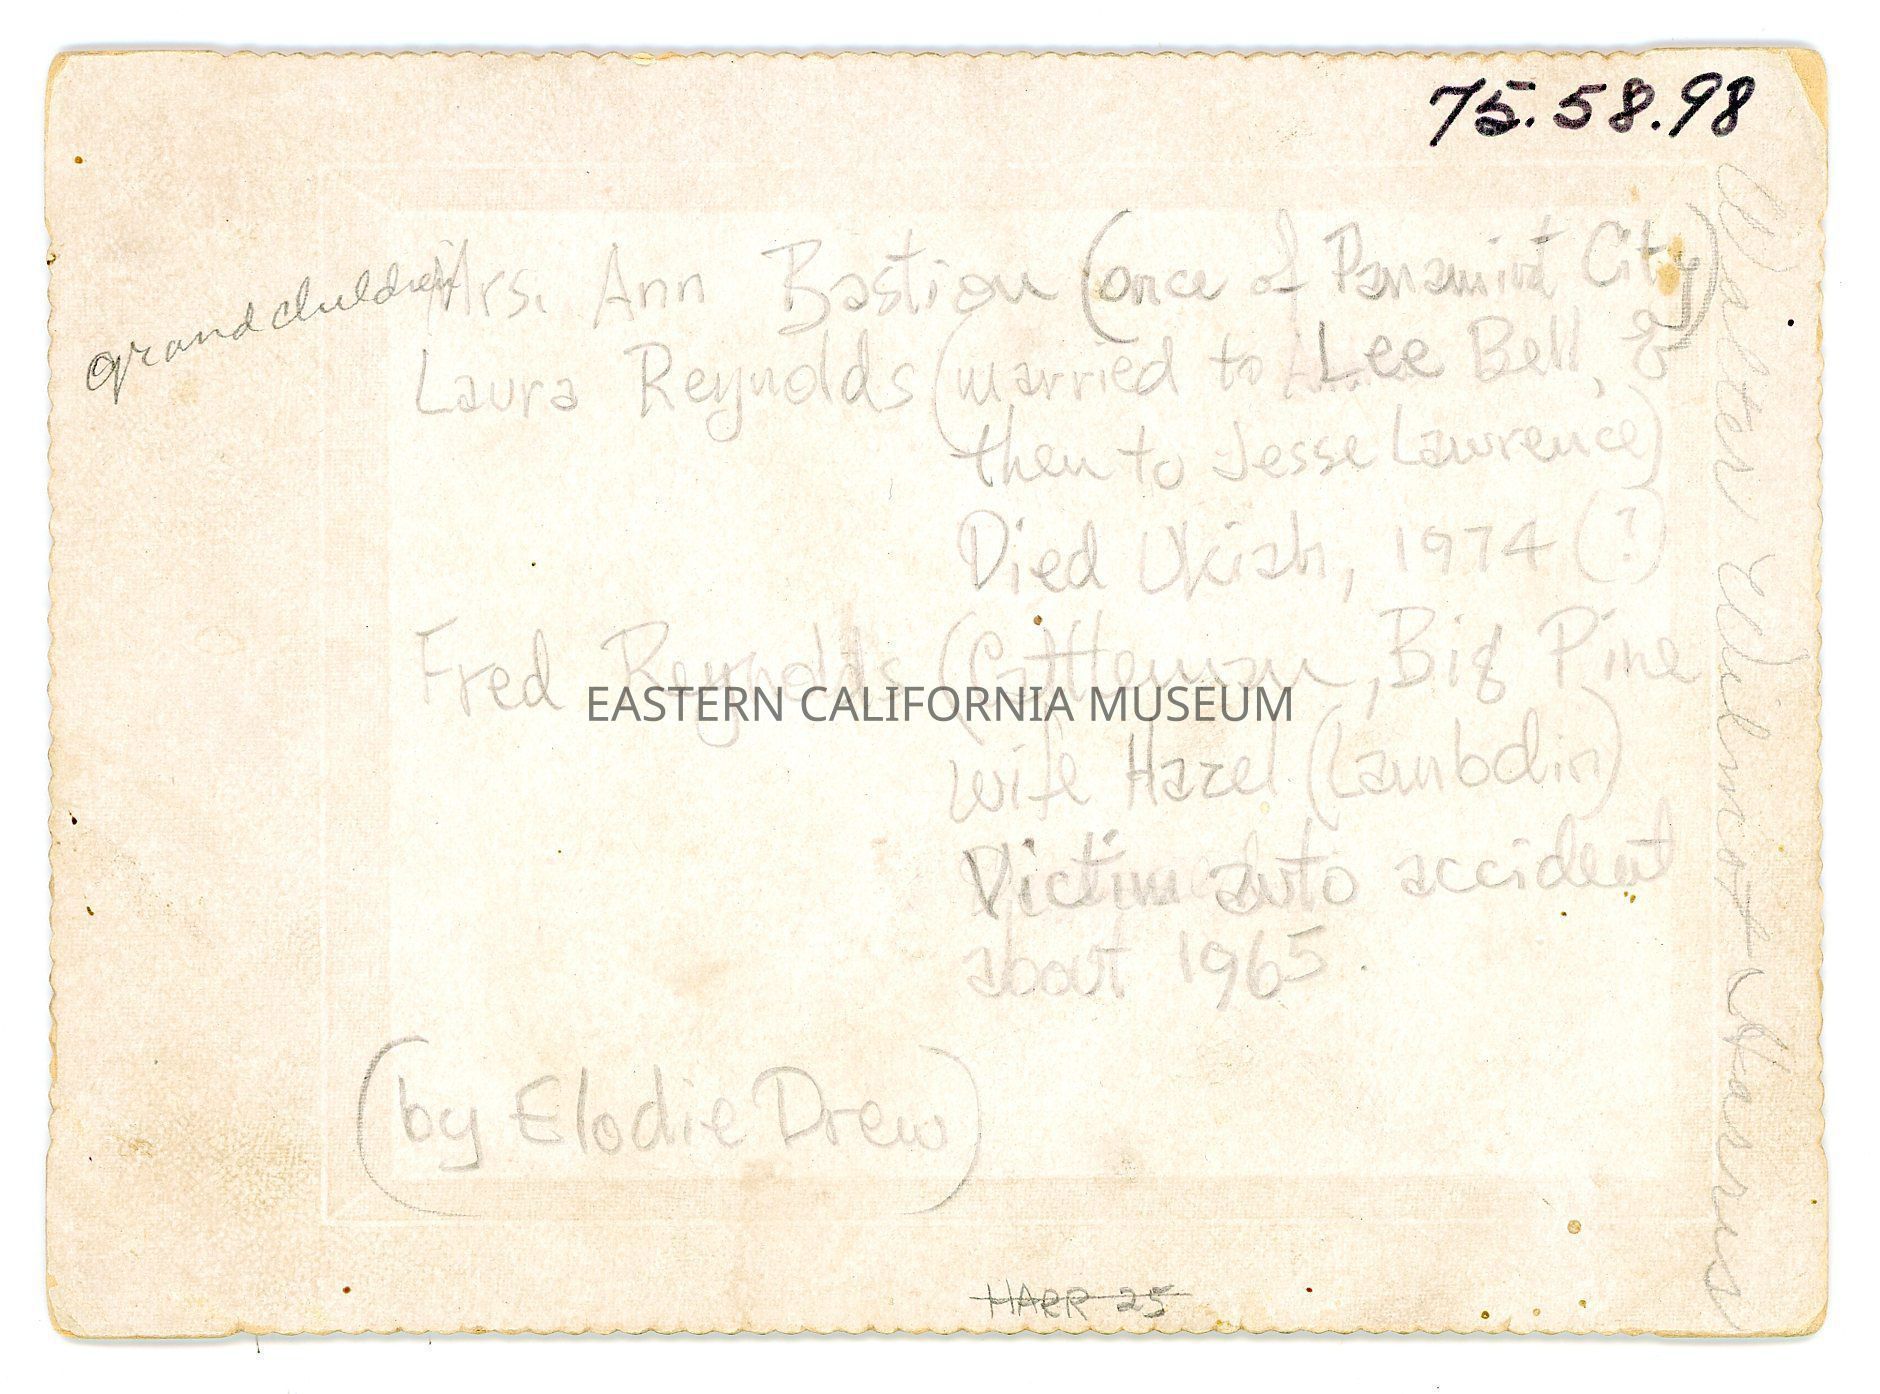 75.58.98
grandchildren
Mrs. Ann Bastian (once of Panamint City)
Laura Reynolds (married to Lee Bell, &
then to Jesse Lawrence)
Died Ukiah, 1974 (?)
Fred Reynolds (Cattleman, Big Pine
EASTERN CALIFORNIA MUSEUM
wife Hazel (Lambdin)
Victim auto accident
about 1965
(by Elodie Drew)
HARR 25
Walter Wilmot Harris